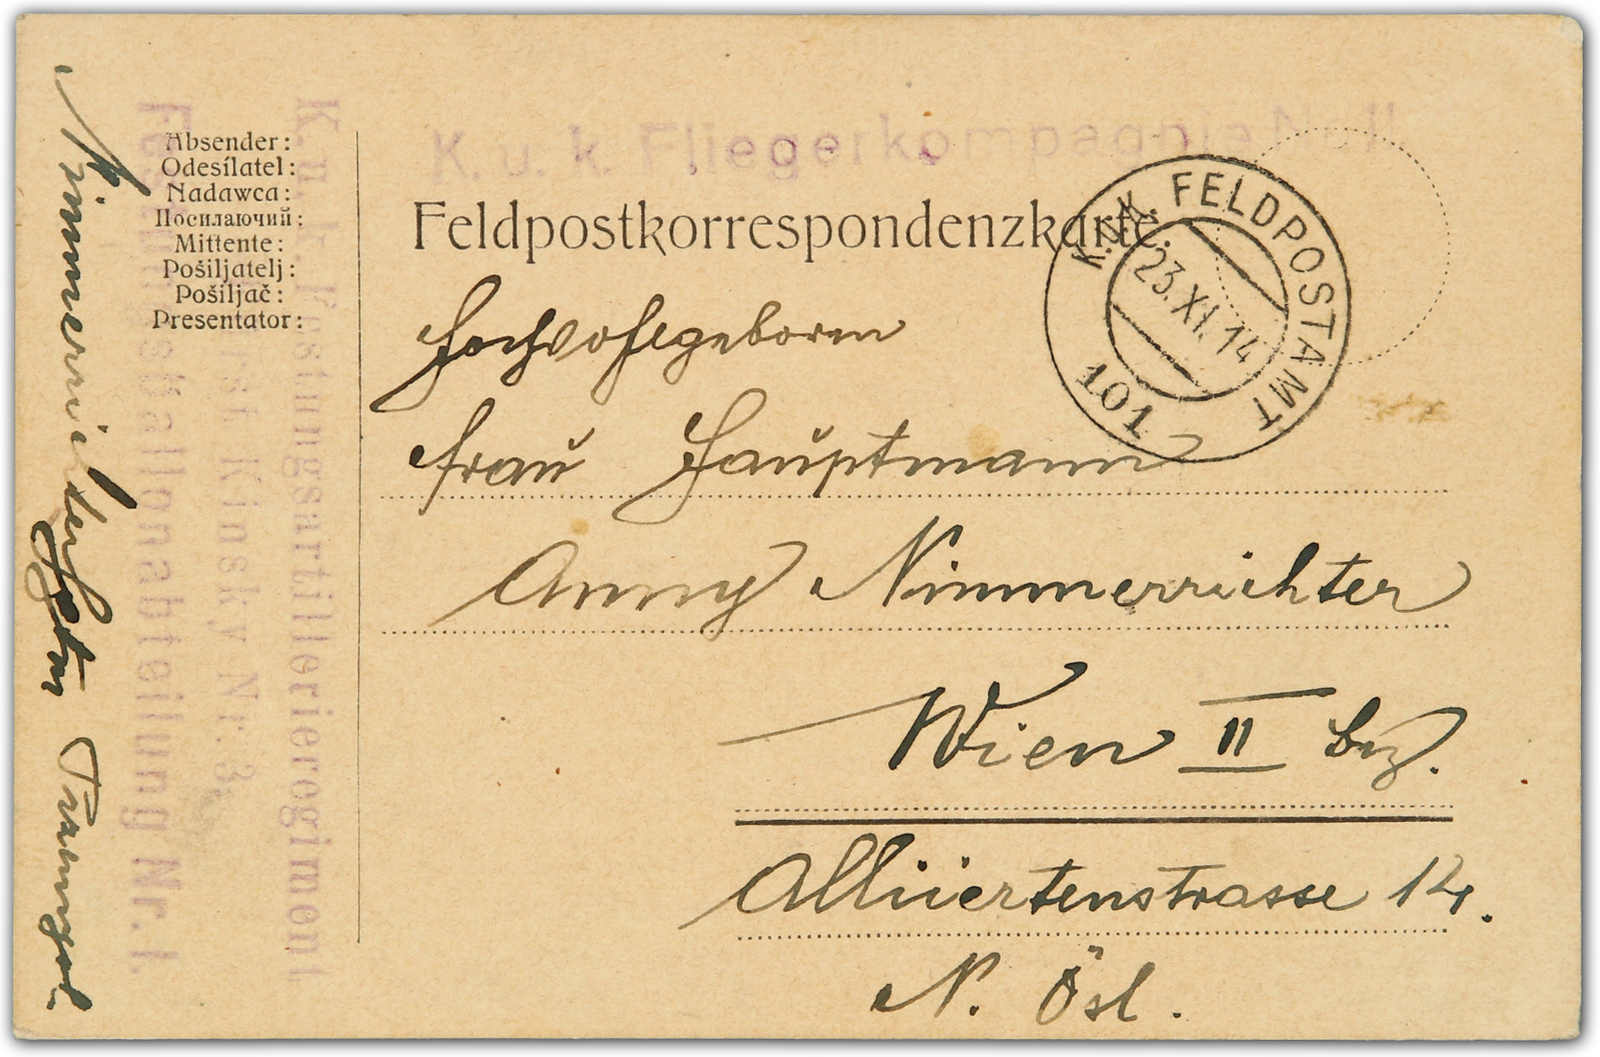 K. u. k. Fliegerkompagnie Nr 11
Feldpostkorrespondenzkarte.
K.u.K. FELDPOSTAMT
23.XI.14
101
Hochwohlgeboren
Frau Hauptmann
Anny Nimmerrichter
Wien II Bez.
Alliiertenstrasse 14.
N. Ösl.
Absender:
Odesílatel:
Nadawca:
Посилаючий:
Mittente:
Pošiljatelj:
Pošiljač:
Presentator:
K. u. k. Festungsartillerieregiment
Fürst Kinsky Nr. 3,
Festungsballonabteilung Nr. I.
Nimmerrichter